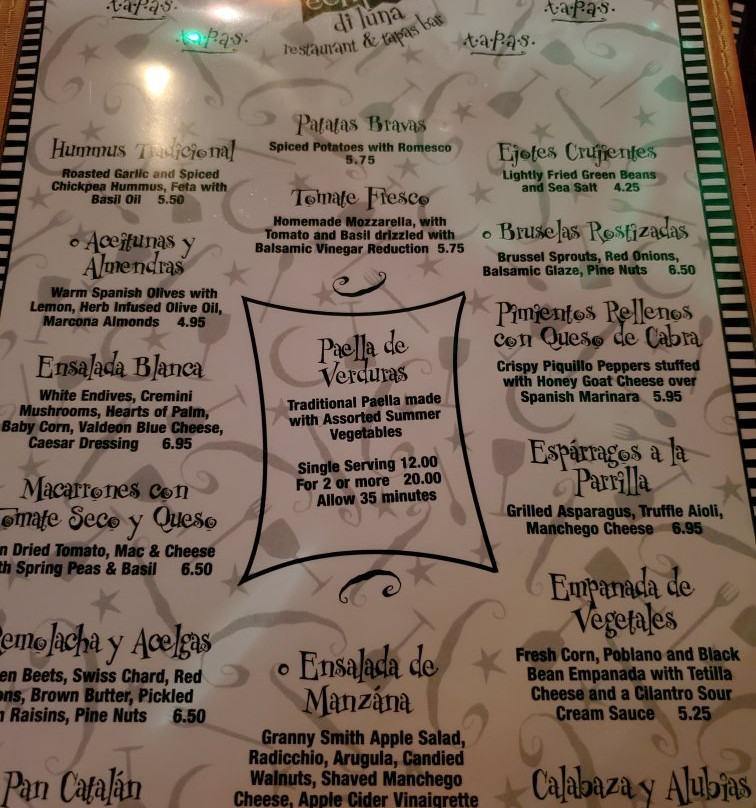 tapas.
tapas.
di luna
restaurant & tapas bar
tapas.
tapas.
Hummus Tradicional
Roasted Garlic and Spiced
Chickpea Hummus, Feta with
Basil Oil 5.50
Aceitunas y
Almendras
Warm Spanish Olives with
Lemon, Herb Infused Olive Oil,
Marcona Almonds 4.95
Ensalada Blanca
White Endives, Cremini
Mushrooms, Hearts of Palm,
Baby Corn, Valdeon Blue Cheese,
Caesar Dressing 6.95
Macarrones con
Tomate Seco y Queso
n Dried Tomato, Mac & Cheese
th Spring Peas & Basil 6.50
emolacha y Acelgas
en Beets, Swiss Chard, Red
ons, Brown Butter, Pickled
n Raisins, Pine Nuts 6.50
Pan Catalán
Patatas Bravas
Spiced Potatoes with Romesco
5.75
Tomate Fresco
Homemade Mozzarella, with
Tomato and Basil drizzled with
Balsamic Vinegar Reduction 5.75
Paella de
Verduras
Traditional Paella made
with Assorted Summer
Vegetables
Single Serving 12.00
For 2 or more 20.00
Allow 35 minutes
Ensalada de
Manzána
Granny Smith Apple Salad,
Radicchio, Arugula, Candied
Walnuts, Shaved Manchego
Cheese, Apple Cider Vinaigrette
Ejotes Crujientes
Lightly Fried Green Beans
and Sea Salt 4.25
Bruselas Rostizadas
Brussel Sprouts, Red Onions,
Balsamic Glaze, Pine Nuts 6.50
Pimientos Rellenos
con Queso de Cabra
Crispy Piquillo Peppers stuffed
with Honey Goat Cheese over
Spanish Marinara 5.95
Espárragos a la
Parrilla
Grilled Asparagus, Truffle Aioli,
Manchego Cheese 6.95
Empanada de
Vegetales
Fresh Corn, Poblano and Black
Bean Empanada with Tetilla
Cheese and a Cilantro Sour
Cream Sauce 5.25
Calabaza y Alubias